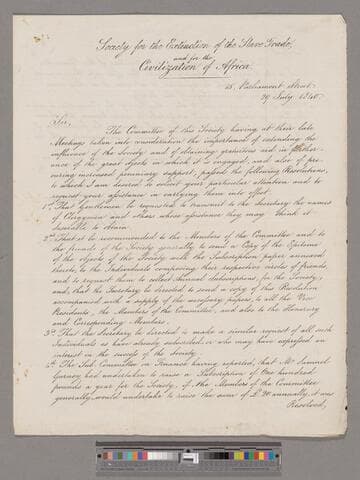 Society for the Extinction of the Slave Trade,
and for the
Civilization of Africa.
15, Parliament Street.
29 July 1840.
Sir,
The Committee of this Society having at their late
Meeting taken into consideration the importance of extending the
influence of the Society and of obtaining gratuitous aid in further-
ance of the great objects in which it is engaged, and also of pro-
curing increased pecuniary support, passed the following Resolutions,
to which I am desired to solicit your particular attention and to
request your assistance in carrying them into effect.
1st That Gentlemen be requested to transmit to the Secretary the names
of Clergymen and others whose assistance they may think it
desirable to obtain.
2nd That it be recommended to the Members of the Committee and to
the friends of the Society generally to send a Copy of the Epitome
of the objects of the Society with the Subscription paper annexed
thereto, to the Individuals composing their respective circles of friends,
and to request them to collect Annual Subscriptions for the Society;
and, that the Secretary be directed to send a copy of this Resolution
accompanied with a supply of the necessary papers, to all the Vice
Presidents, the Members of the Committee, and also to the Honorary
and Corresponding Members.
3rd That the Secretary be directed to make a similar request of all such
Individuals as have already subscribed, or who may have expressed an
interest in the success of the Society.
4th The Sub Committee on Finance having reported, that Mr Samuel
Gurney had undertaken to raise a Subscription of One hundred
pounds a year for the Society, if the Members of the Committee
generally would undertake to raise the sum of £20 annually, it was
Resolved,